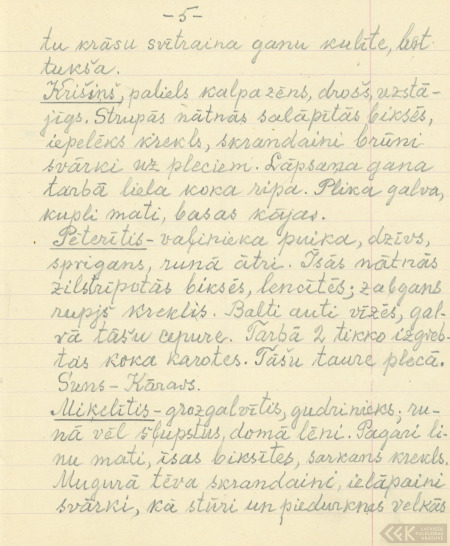 -5-
tu krāsu svītraina ganu kulīte, bet
tukša.
Krišiņš, paliels kalpa zēns, drošs, uzstā-
jīgs. Strupās nātnās salāpītās biksēs,
iepelēks krekls, skrandaini brūni
svārki uz pleciem. Lāpsama gana
tarbā liela koka ripa. Plika galva,
kupli mati, basas kājas.
Pēterītis - vaļinieka puika, dzīvs,
sprigans, runā ātri. Īsās nātnās
zilstrīpotās biksēs, lencītēs; zabgans
rupjš kreklis. Balti auti vīzēs, gal-
vā tāšu cepure. Tarbā 2 tikko izgreb-
tas koka karotes. Tāšu taure plecā.
Suns - Kāravs.
Miķelītis - grozgalvītis, gudrinieks, ru-
nā vēl šļupstus, domā lēni. Pagari li-
nu mati, īsas biksītes, sarkans krekls.
Mugurā tēva skrandaini, ielāpaini
svārki, kā stūri un piedurknes velkās
LATVIEŠU
FOLKLORAS
KRĀTUVE